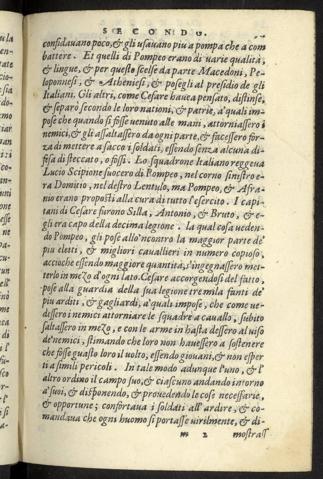 SECONDO.
confidavano poco, & gli usavano piu a pompa che a com
battere. Et quelli di Pompeo erano di varie qualità,
& lingue, & per questo scelse da parte Macedoni, Pe-
loponnesi, & Atheniesi, & posegli al presidio de gli
Italiani. Gli altri, come Cesare havea pensato, distinse,
& separò secondo le loro nationi, & patrie, a'quali im-
pose che quando si fosse venuto alle mani, attorniassero i
nemici, & gli assaltassero da ogni parte, & facessero for-
za di mettere a sacco i soldati, essendo senza alcuna di-
fesa di steccato, o fossi. Lo squadrone Italiano reggeva
Lucio Scipione suocero di Pompeo, nel corno sinistro e-
ra Domitio, nel destro Lentulo, ma Pompeo, & Afra-
nio erano proposti alla cura di tutto l'esercito. I capi-
tani di Cesare furono Silla, Antonio, & Bruto, & e-
gli era capo della decima legione. la qual cosa veden-
do Pompeo, gli pose all'ncontro la maggior parte de'
piu eletti, & migliori cavallieri in numero copioso,
accioche essendo maggiore quantità, s'ingegnassero met-
terlo in mezo d'ogni lato. Cesare accorgendosi del fatto,
pose alla guardia della sua legione tre mila fanti de'
piu arditi, & gagliardi, a'quali impose, che come ve-
dessero i nemici attorniare le squadre a cavallo, subito
saltassero in mezo, e con le arme in hasta dessero al viso
de'nemici, stimando che loro non havessero a sostenere
che fosse guasto loro il volto, essendo giovani, & non esper
ti a simili pericoli. In tale modo adunque l'uno, & l'
altro ordino il campo suo, & ciascuno andando intorno
a'suoi, & disponendo, & provedendo le cose necessarie,
& opportune; confortava i soldati all'ardire, & co-
mandava che ogni huomo si portasse virilmente, & di-
m 2 mostrass